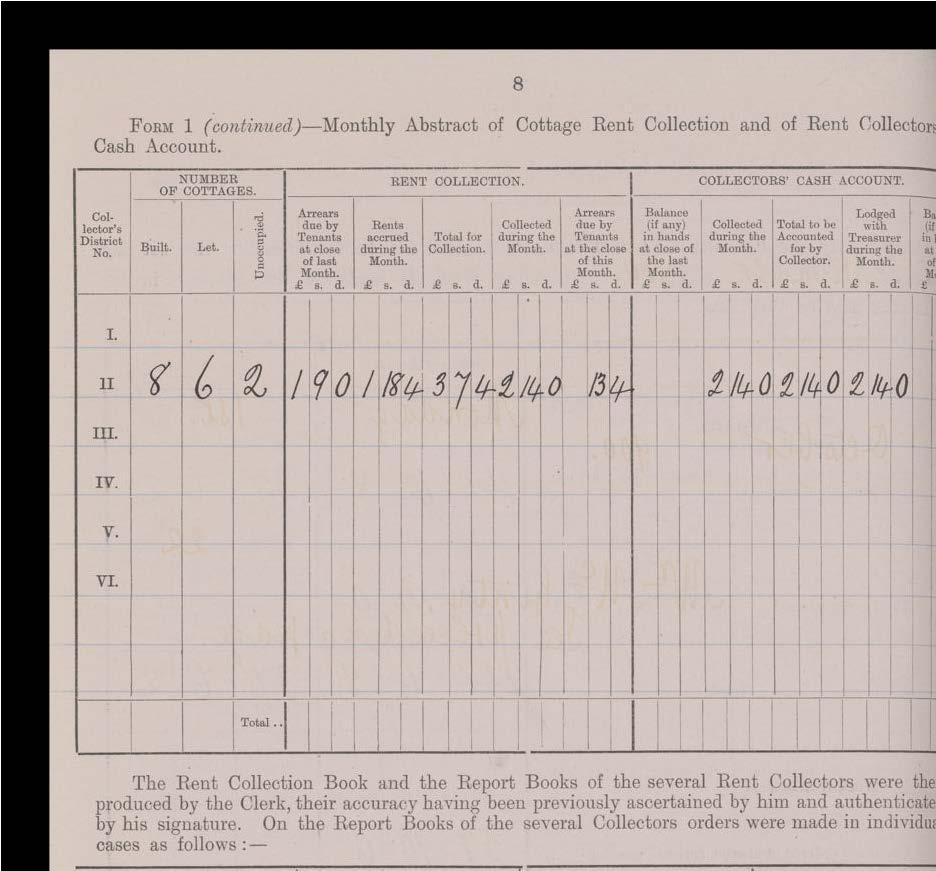 8
FORM 1 (continued)—Monthly Abstract of Cottage Rent Collection and of Rent Collectors
Cash Account.
NUMBER OF COTTAGES. RENT COLLECTION. COLLECTORS' CASH ACCOUNT.
Collector's District No. Built. Let. Unoccupied. Arrears due by Tenants at close of last Month. Rents accrued during the Month. Total for Collection. Collected during the Month. Arrears due by Tenants at the close of this Month. Balance (if any) in hands at close of the last Month. Collected during the Month. Total to be Accounted for by Collector. Lodged with Treasurer during the Month.
£ s. d. £ s. d. £ s. d. £ s. d. £ s. d. £ s. d. £ s. d. £ s. d. £ s. d. £
I.
II 8 6 2 1 9 0 1 18 4 3 7 4 2 14 0 13 4 2 14 0 2 14 0 2 14 0
III.
IV.
V.
VI.
Total ..
The Rent Collection Book and the Report Books of the several Rent Collectors were the
produced by the Clerk, their accuracy having been previously ascertained by him and authenticate
by his signature. On the Report Books of the several Collectors orders were made in individua
cases as follows :—